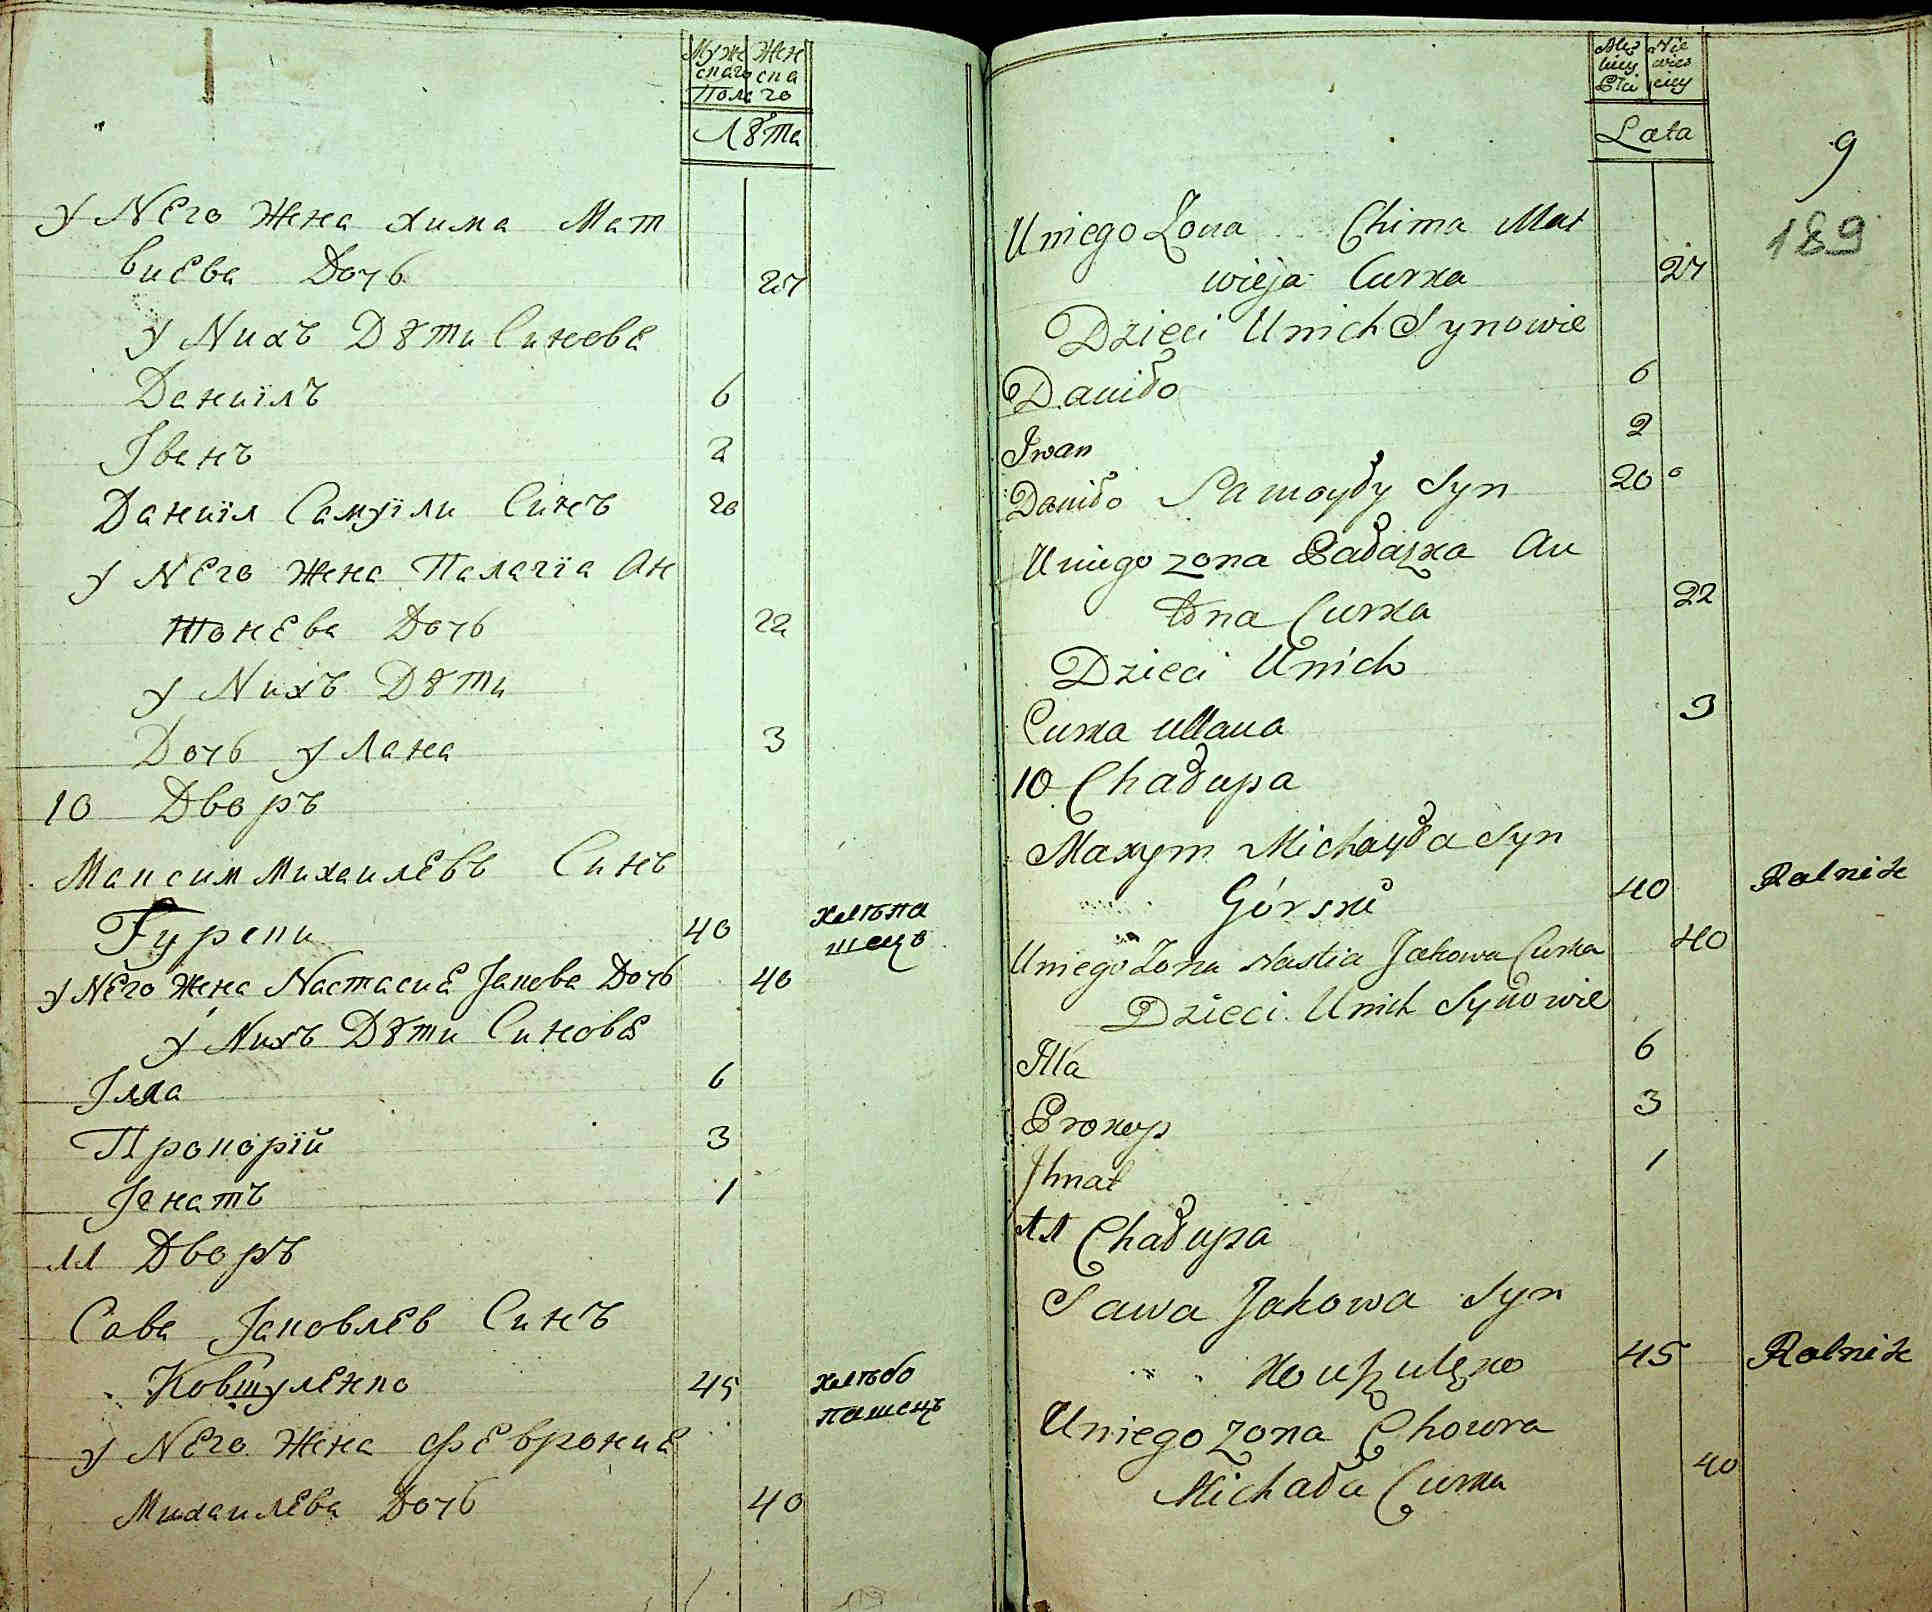 Муже Жен
скаго ска
Пола го
Лѣта
У Него Жена Хима Мат
виева Дочь 27
У Нихъ Дѣти Синове
Даниїлъ 6
Іванъ 2
Даниїл Самуїли Синъ 20
У Него Жена Палагїа Ан
тонева Дочь 22
У Нихъ Дѣти
Дочь Улана 3
10 Дворъ
Максим Михаилевъ Синъ
Гурски 40 хлѣбпа
шецъ
У Него Жена Настасиа Јакова Дочь 40
У Нихъ Дѣти Синовѣ
Ілла 6
Прокопій 3
Ігнатъ 1
11 Дворъ
Сава Јаковлев Синъ
Ковтуленко 45 хлѣбо
пашецъ
У Него Жена Феврониа
Михаилева Дочь 40
Męz Nie
kiey wies
Płci ciey
Lata
9
189
Uniego Zona Chima Mat
wieja Curka 27
Dzieci Unich Synowie
Daniło 6
Iwan 2
Daniło Samoyły Syn 20
Uniego zona Pałaszka An
tona Curka 22
Dzieci Unich
Curka Ullana 3
10 Chałupa
Maxym Michayła Syn
Górski 40 Rolnik
Uniego Zona Nastia Jakowa Curka 40
Dzieci Unich Synowie
Illa 6
Prokop 3
Ihnat 1
11 Chałupa
Sawa Jakowa Syn
45 Rolnik
Uniego zona Chowra
Michała Curka 40